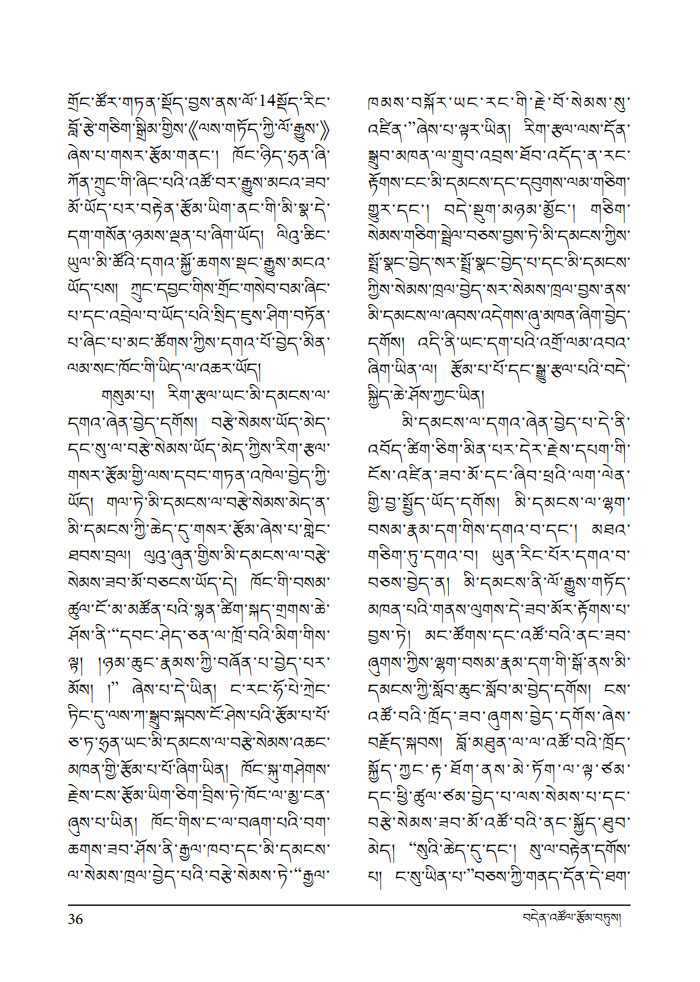 གྲོང་ཚོར་གཏན་སྡོད་བྱས་ནས་ལོ་14སྡོད་རིང་
བློ་རྩེ་གཅིག་སྒྲིམ་གྱིས་《ལས་གཏོད་ཀྱི་ལོ་རྒྱུས་》
ཞེས་པ་གསར་རྩོམ་གནང་། ཁོང་ཉིད་ཧྲན་ཞི་
ཀོན་ཀྲུང་གི་ཞིང་པའི་འཚོ་བར་རྒྱུས་མངའ་ཟབ་
མོ་ཡོད་པར་བརྟེན་རྩོམ་ཡིག་ནང་གི་མི་སྣ་དེ་
དག་གསོན་ཉམས་ལྡན་པ་ཞིག་ཡོད། ལིའུ་ཆིང་
ཡུལ་མི་ཚོའི་དགའ་སྐྱོ་ཆགས་སྡང་རྒྱུས་མངའ་
ཡོད་པས། ཀྲུང་དབྱང་གིས་གྲོང་གསེབ་བམ་ཞིང་
པ་དང་འབྲེལ་བ་ཡོད་པའི་སྲིད་ཇུས་ཤིག་བཏོན་
པ་ཞིང་པ་མང་ཚོགས་ཀྱིས་དགའ་པོ་བྱེད་མིན་
ལམ་སང་ཁོང་གི་ཡིད་ལ་འཆར་ཡོད།
གསུམ་པ། རིག་རྩལ་ཡང་མི་དམངས་ལ་
དགའ་ཞེན་བྱེད་དགོས། བརྩེ་སེམས་ཡོད་མེད་
དང་སུ་ལ་བརྩེ་སེམས་ཡོད་མེད་ཀྱིས་རིག་རྩལ་
གསར་རྩོམ་གྱི་ལས་དབང་གཏན་འཁེལ་བྱེད་ཀྱི་
ཡོད། གལ་ཏེ་མི་དམངས་ལ་བརྩེ་སེམས་མེད་ན་
མི་དམངས་ཀྱི་ཆེད་དུ་གསར་རྩོམ་ཞེས་པ་གླེང་
ཐབས་བྲལ། ལུའུ་ཞུན་གྱིས་མི་དམངས་ལ་བརྩེ་
སེམས་ཟབ་མོ་བཅངས་ཡོད་དེ། ཁོང་གི་བསམ་
ཚུལ་ངོ་མ་མཚོན་པའི་སྙན་ཚིག་སྐད་གྲགས་ཆེ་
ཤོས་ནི་“དབང་ཤེད་ཅན་ལ་ཁྲོ་བའི་མིག་གིས་
ལྟ། །ཉམ་ཆུང་རྣམས་ཀྱི་བཞོན་པ་བྱེད་པར་
མོས། །” ཞེས་པ་དེ་ཡིན། ང་རང་ཧོ་པེ་ཀྲེང་
ཏིང་དུ་ལས་ཀ་སྒྲུབ་སྐབས་ངོ་ཤེས་པའི་རྩོམ་པ་པོ་
ཅ་ཏ་ཧྲན་ཡང་མི་དམངས་ལ་བརྩེ་སེམས་འཆང་
མཁན་གྱི་རྩོམ་པ་པོ་ཞིག་ཡིན། ཁོང་སྐུ་གཤེགས་
རྗེས་ངས་རྩོམ་ཡིག་ཅིག་བྲིས་ཏེ་ཁོང་ལ་མྱ་ངན་
ཞུས་པ་ཡིན། ཁོང་གིས་ང་ལ་བཞག་པའི་བག་
ཆགས་ཟབ་ཤོས་ནི་རྒྱལ་ཁབ་དང་མི་དམངས་
ལ་སེམས་ཁྲལ་བྱེད་པའི་བརྩེ་སེམས་ཏེ་“རྒྱལ་
ཁམས་བསྐོར་ཡང་རང་གི་རྗེ་བོ་སེམས་སུ་
འཛིན་”ཞེས་པ་ལྟར་ཡིན། རིག་རྩལ་ལས་དོན་
སྒྲུབ་མཁན་ལ་གྲུབ་འབྲས་ཐོབ་འདོད་ན་རང་
རྟོགས་ངང་མི་དམངས་དང་དབུགས་ལམ་གཅིག་
གྱུར་དང་། བདེ་སྡུག་མཉམ་མྱོང་། གཅིག་
སེམས་གཅིག་སྦྲེལ་བཅས་བྱས་ཏེ་མི་དམངས་ཀྱིས་
སྤྲོ་སྣང་བྱེད་སར་སྤྲོ་སྣང་བྱེད་པ་དང་མི་དམངས་
ཀྱིས་སེམས་ཁྲལ་བྱེད་སར་སེམས་ཁྲལ་བྱས་ནས་
མི་དམངས་ལ་ཞབས་འདེགས་ཞུ་མཁན་ཞིག་བྱེད་
དགོས། འདི་ནི་ཡང་དག་པའི་འགྲོ་ལམ་འབའ་
ཞིག་ཡིན་ལ། རྩོམ་པ་པོ་དང་སྒྱུ་རྩལ་པའི་བདེ་
སྐྱིད་ཆེ་ཤོས་ཀྱང་ཡིན།
མི་དམངས་ལ་དགའ་ཞེན་བྱེད་པ་དེ་ནི་
འབོད་ཚིག་ཅིག་མིན་པར་དེར་རྗེས་དཔག་གི་
ངོས་འཛིན་ཟབ་མོ་དང་ཞིབ་ཕྲའི་ལག་ལེན་
གྱི་བྱ་སྤྱོད་ཡོད་དགོས། མི་དམངས་ལ་ལྷག་
བསམ་རྣམ་དག་གིས་དགའ་བ་དང་། མཐའ་
གཅིག་ཏུ་དགའ་བ། ཡུན་རིང་པོར་དགའ་བ་
བཅས་བྱེད་ན། མི་དམངས་ནི་ལོ་རྒྱུས་གཏོད་
མཁན་པའི་གནས་ལུགས་དེ་ཟབ་མོར་རྟོགས་པ་
བྱས་ཏེ། མང་ཚོགས་དང་འཚོ་བའི་ནང་ཟབ་
ཞུགས་ཀྱིས་ལྷག་བསམ་རྣམ་དག་གི་སྒོ་ནས་མི་
དམངས་ཀྱི་སློབ་ཆུང་སློབ་མ་བྱེད་དགོས། ངས་
འཚོ་བའི་ཁྲོད་ཟབ་ཞུགས་བྱེད་དགོས་ཞེས་
བརྗོད་སྐབས། བློ་མཐུན་ལ་ལ་འཚོ་བའི་ཁྲོད་
སྐྱོད་ཀྱང་རྟ་ཐོག་ནས་མེ་ཏོག་ལ་ལྟ་ཙམ་
དང་ཕྱི་ཚུལ་ཙམ་བྱེད་པ་ལས་སེམས་པ་དང་
བརྩེ་སེམས་ཟབ་མོ་འཚོ་བའི་ནང་སྐྱོད་ཐུབ་
མེད། “སུའི་ཆེད་དུ་དང་། སུ་ལ་བརྟེན་དགོས་
པ། ང་སུ་ཡིན་པ་”བཅས་ཀྱི་གནད་དོན་དེ་ཐག་
36
བདེན་འཚོལ་རྩོམ་བཏུས།